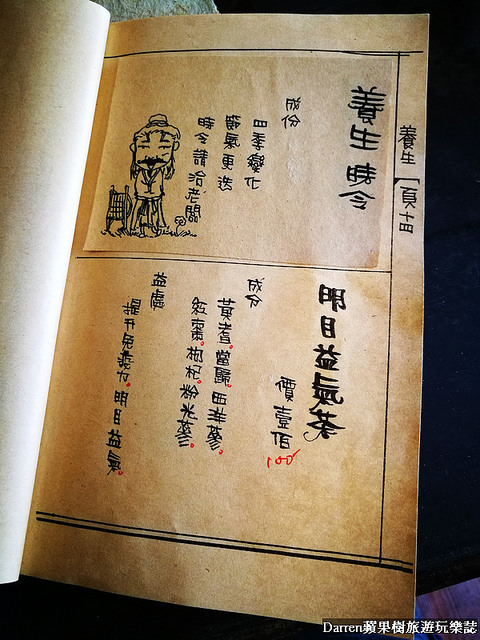 養生 頁十四
養生 時令
成份
四季變化
節氣更迭
時令請洽老闆
明目益氣茶
價壹佰
100
成分
黃耆。當歸。西洋蔘。
紅棗。枸杞。粉光蔘。
益處
提升免疫力。明目益氣。
Darren蘋果樹旅遊玩樂誌